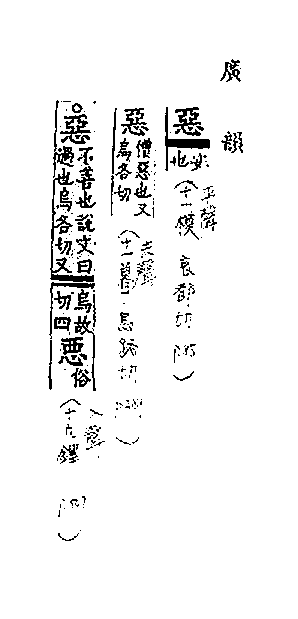 廣韻
惡 安也 平聲(十一模 哀都切
惡 憎惡也又烏各切 去聲(十一暮 烏路切
惡 不善也說文曰過也烏各切又烏故切四 悪俗 入聲(十九鐸